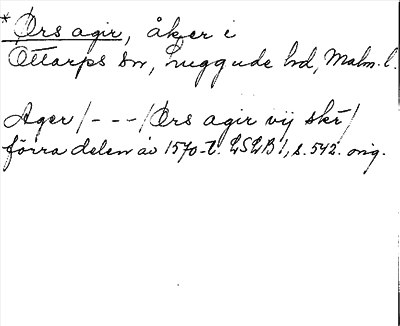 * Örs agir, åker i
Ottarps sn, Luggude hd, Malm. l.
Ager /---/ Örs agir vij skr /
förra delen av 1570-t. LSLB 1, s. 542. orig.